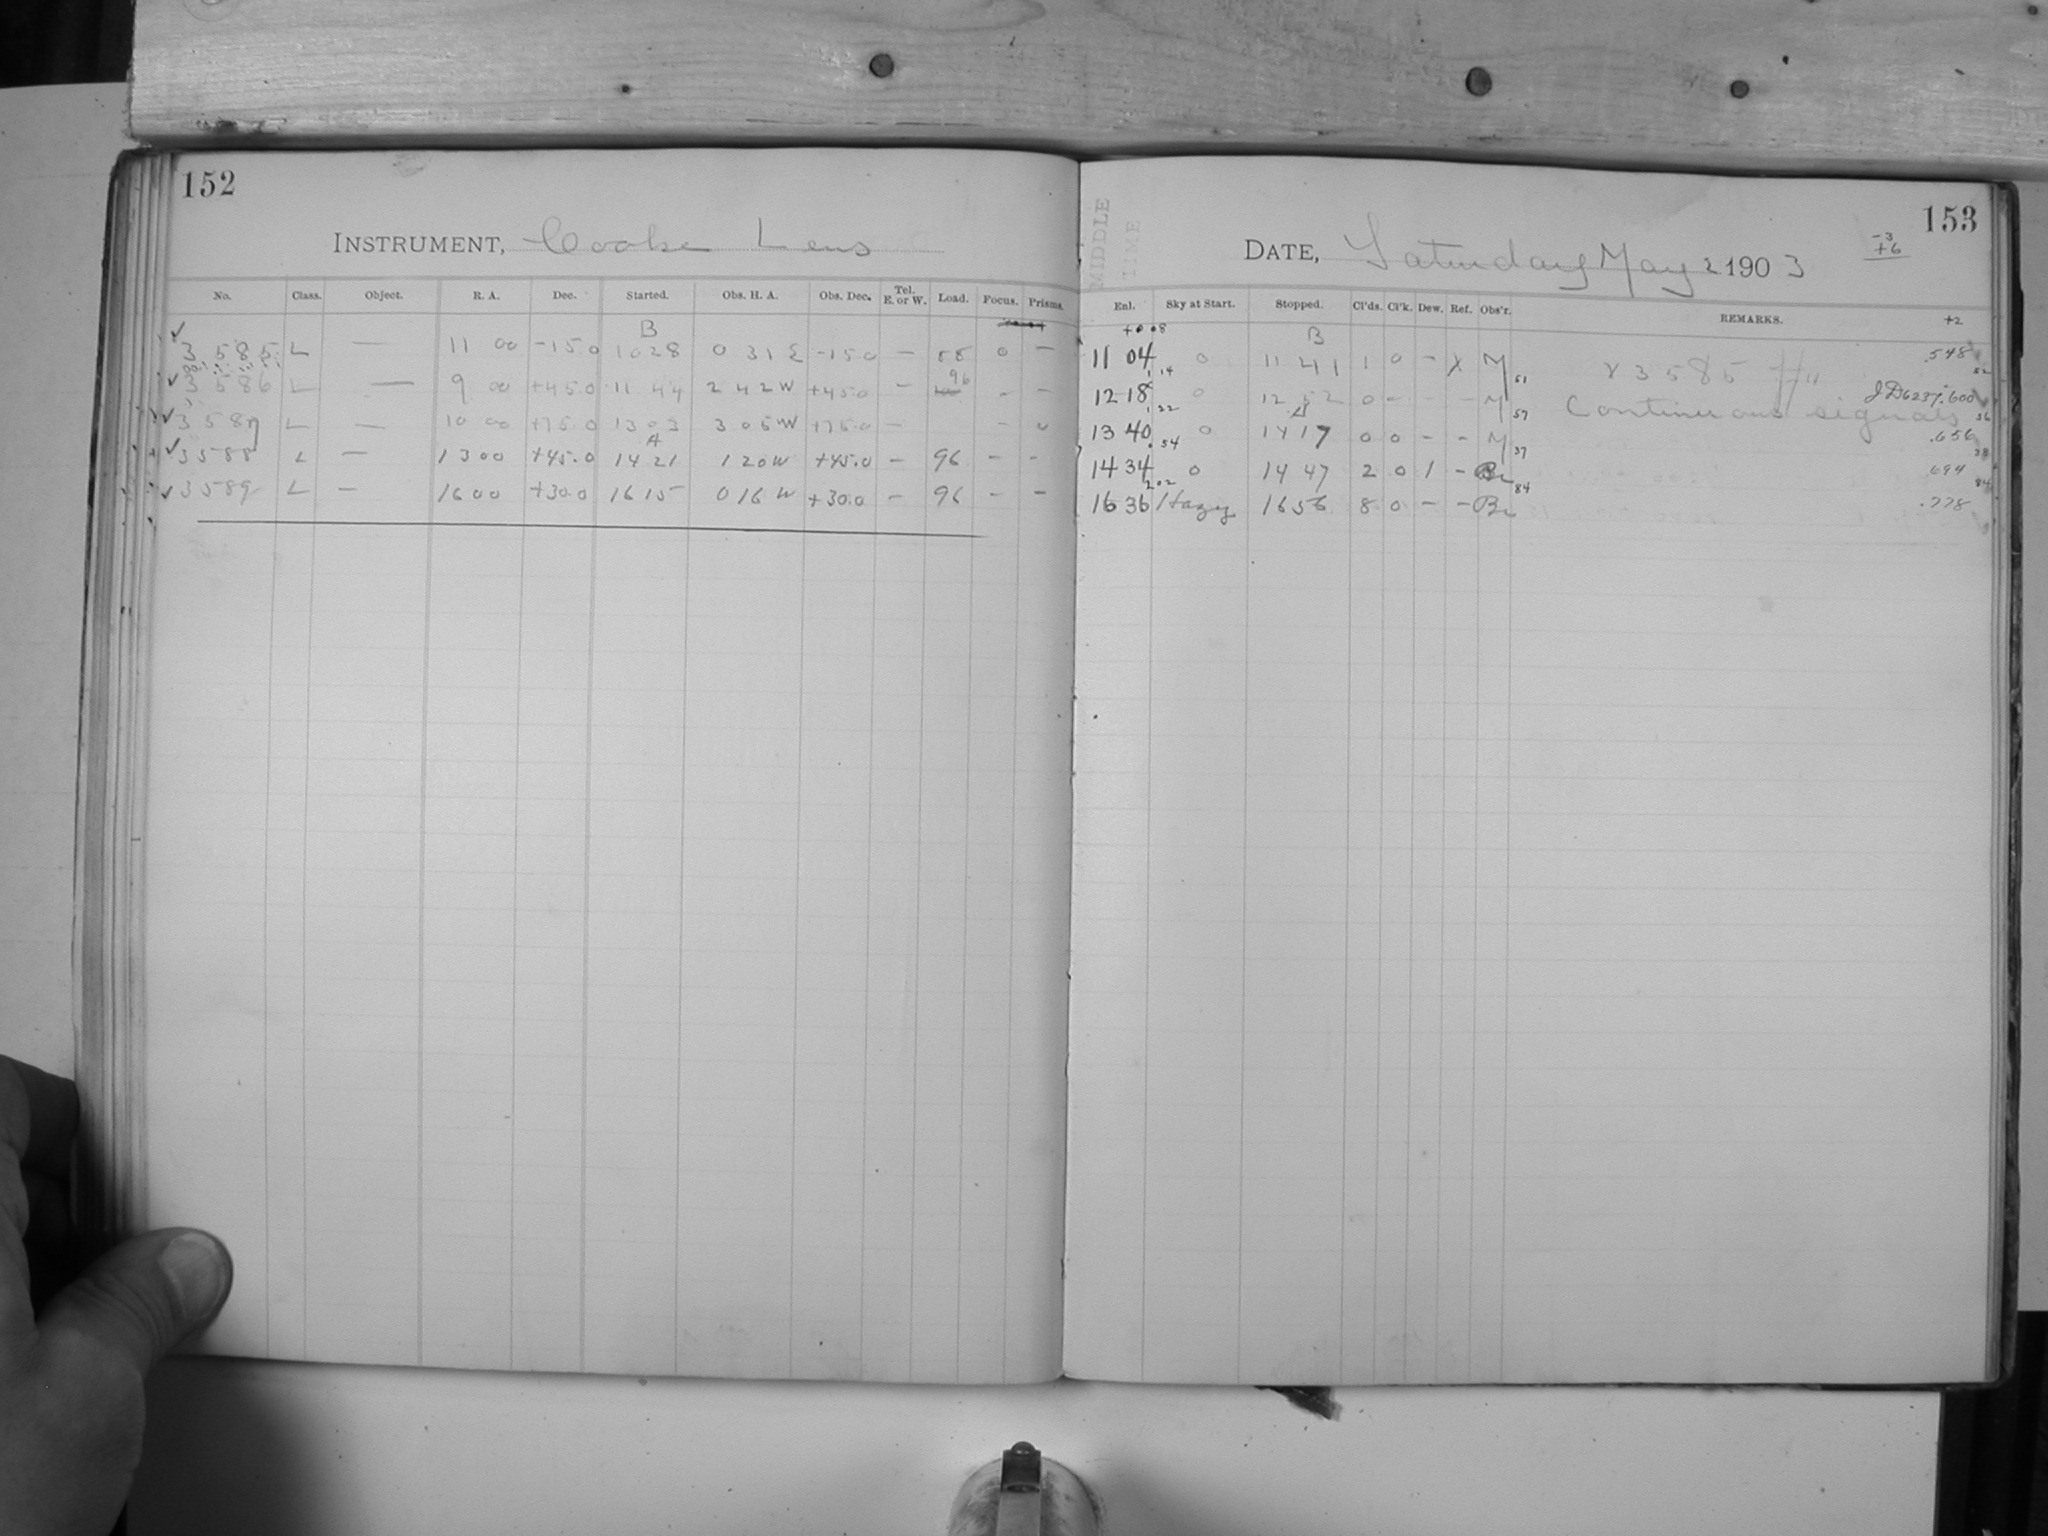 152
INSTRUMENT, Cooke Lens
No. Class. Object. R. A. Dec. Started. Obs. H. A. Obs. Dec. Tel. E. or W. Load. Focus. Prisms.
B
✓ 3585 L — 11 00 -15.0 10 28 0 31 E -15.0 — 0 —
✓ 3586 L — 9 00 +45.0 11 44 2 42 W +45.0 — 96 - -
✓ 3587 L — 10 00 +75.0 13 03 3 05 W +75.0 — -
A
✓ 3588 L — 13 00 +45.0 14 21 1 20 W +45.0 — 96 — -
✓ 3589 L — 16 00 +30.0 16 15 0 16 W +30.0 — 96 — —
153
MIDDLE
TIME
DATE, Saturday May 2 1903
-3
+6
Enl. Sky at Start. Stopped. Cl'ds. Cl'k. Dew. Ref. Obs'r. REMARKS.
+2
B
11 04 0 11 41 1 0 - X M x 3585 .548
14 51 52
12 18 0 12 52 0 - - - M Continuous signals JD 6237.600
22 57 56
A
13 40 0 14 17 0 0 - - M .656
54 37 38
14 34 0 14 47 2 0 1 - Bi .694
202 84 84
16 36 Hazy 16 56 8 0 - - Bi .778